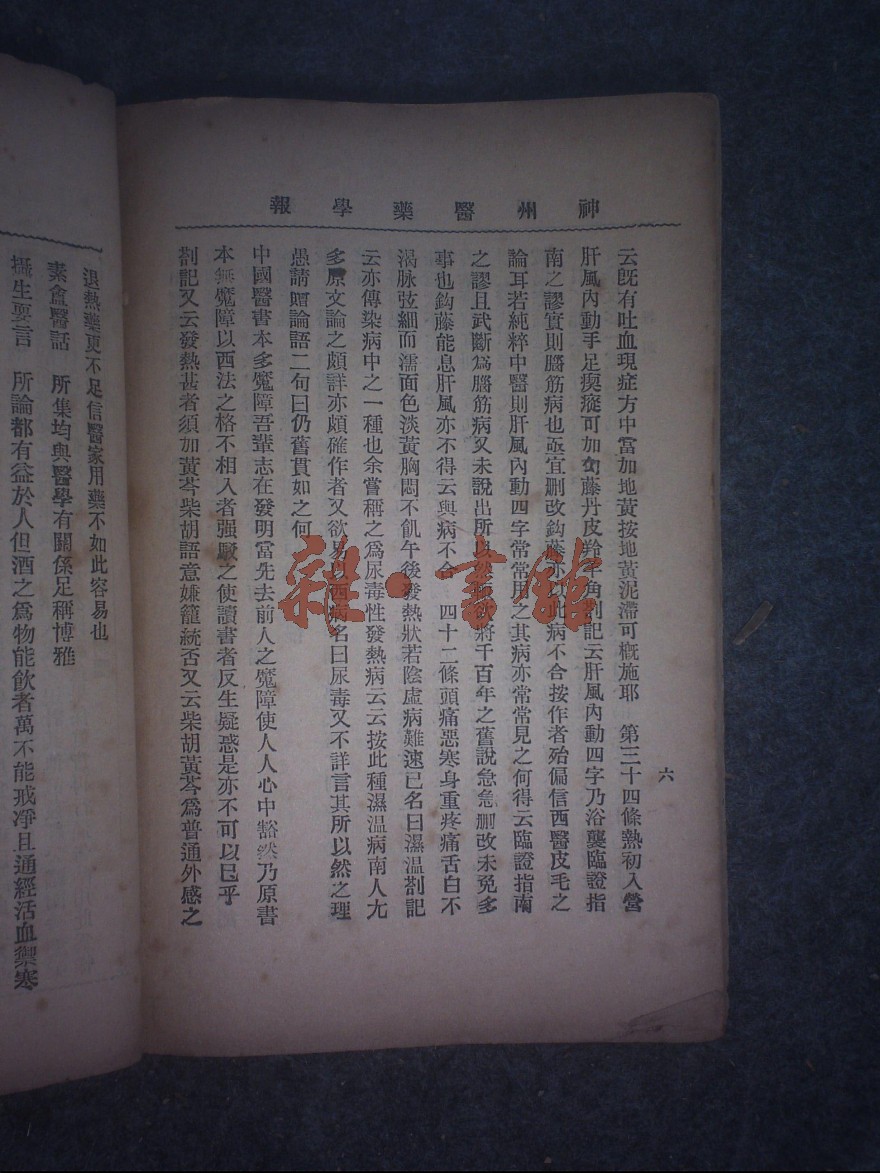 神州醫藥學報
六
云既有吐血現症方中當加地黃按地黃泥滯可槪施耶　第三十四條熱初入營
肝風內動手足瘈瘲可加勾藤丹皮羚羊角劄記云肝風內動四字乃沿襲臨證指
南之謬實則腦筋病也亟宜刪改鈎藤亦以此病不合按作者殆偏信西醫皮毛之
論耳若純粹中醫則肝風內動四字常常用之其病亦常常見之何得云臨證指南
之謬且武斷爲腦筋病又未說出所以然 欲將千百年之舊說急急刪改未免多
事也鈎藤能息肝風亦不得云與病不合　四十二條頭痛惡寒身重疼痛舌白不
渴脉弦細而濡面色淡黃胸悶不飢午後發熱狀若陰虛病難速已名曰濕溫劄記
云亦傳染病中之一種也余嘗稱之爲尿毒性發熱病云云按此種濕溫病南人尤
多原文論之頗詳亦頗確作者又欲易以西病名曰尿毒又不詳言其所以然之理
愚請贈論語二句曰仍舊貫如之何
中國醫書本多魔障吾輩志在發明當先去前人之魔障使人人心中豁然乃原書
本無魔障以西法之格不相入者强驟之使讀書者反生疑惑是亦不可以已乎
劄記又云發熱甚者須加黃芩柴胡語意嫌籠統否又云柴胡黃芩爲普通外感之
退熱藥更不足信醫家用藥不如此容易也
素盦醫話　所集均與醫學有關係足稱博雅
攝生要言　所論都有益於人但酒之爲物能飲者萬不能戒凈且通經活血禦寒
雜·書館